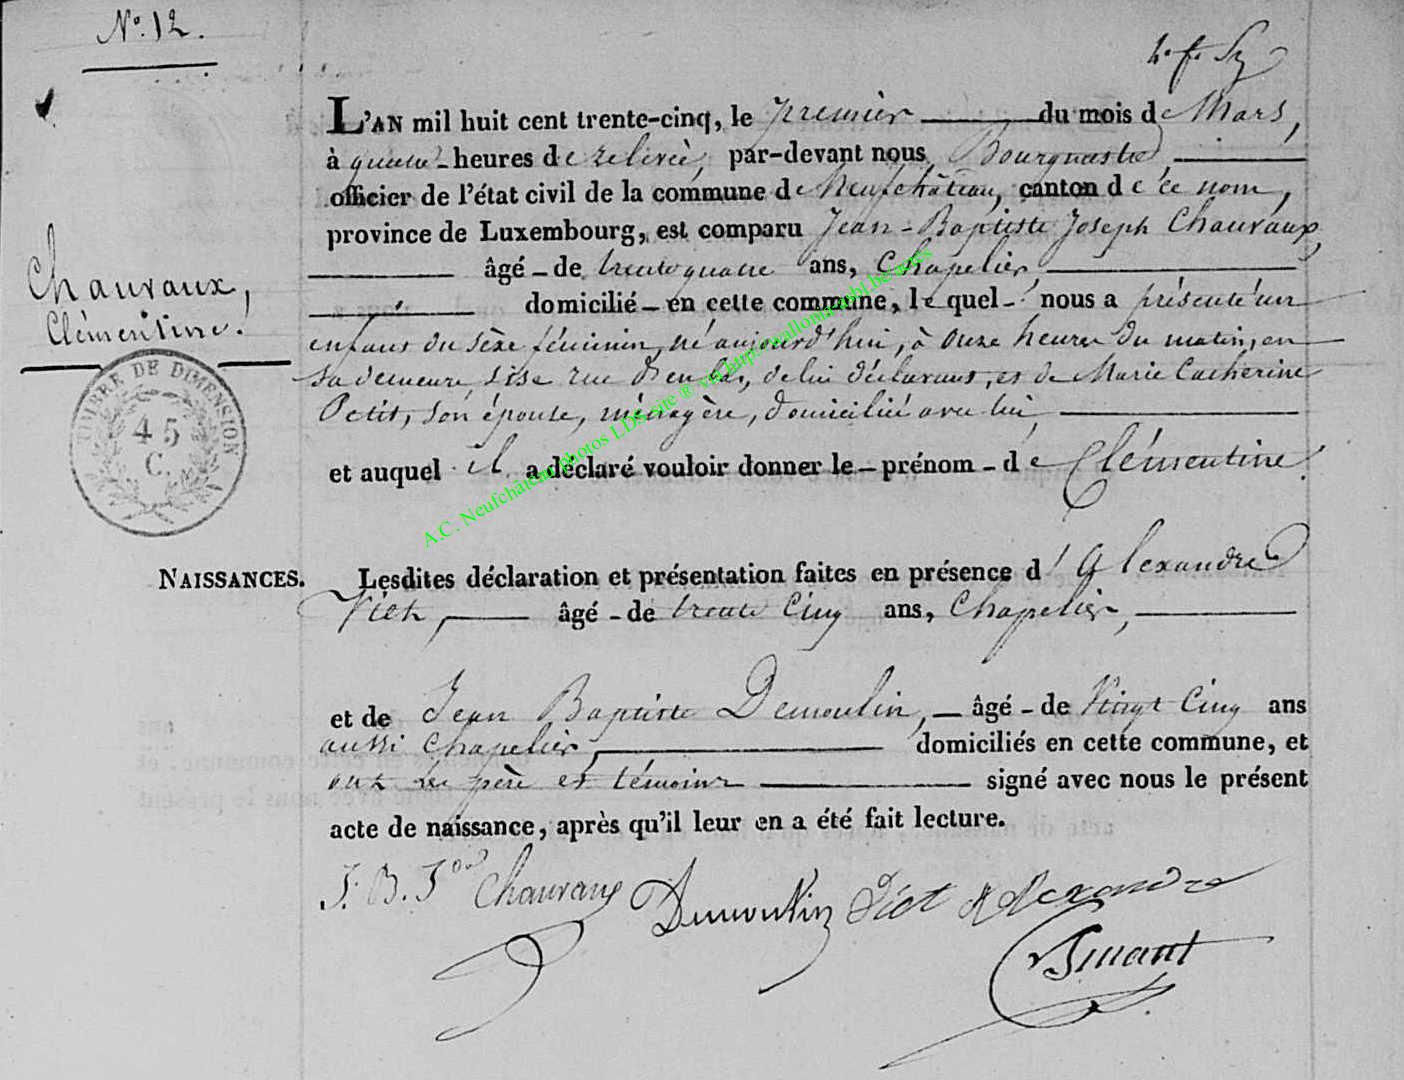 N.° 12.
L'AN mil huit cent trente-cinq, le premier du mois de Mars,
à quatre heures de relevée, par-devant nous Bourgmestre,
officier de l'état civil de la commune de Neufchâteau, canton de ce nom,
province de Luxembourg, est comparu Jean-Baptiste Joseph Chauvaux,
âgé - de trente quatre ans, Chapelier
domicilié - en cette commune, lequel - nous a présenté un
Chauvaux,
Clémentine.
enfant du sèxe féminin, né aujourd'hui, à onze heures du matin, en
sa demeure sise rue d'en bas, de lui déclarant, et de Marie Catherine
Petit, son épouse, ménagère, domiciliée avec lui
et auquel il a déclaré vouloir donner le - prénom - de Clémentine.
TIMBRE DE DIMENSION
45
C.
A.C. Neufchâteau photos LDS site ® via http://wallonia-asbl.be/actes
NAISSANCES.
Lesdites déclaration et présentation faites en présence d'Alexandre
Diet, âgé - de trente Cinq ans, Chapelier,
et de Jean Baptiste Demoulin, - âgé - de Vingt Cinq ans
aussi Chapelier domiciliés en cette commune, et
ont les père et témoins signé avec nous le présent
acte de naissance, après qu'il leur en a été fait lecture.
J. B. Jos Chauvaux Demoulin Diet Alexandre